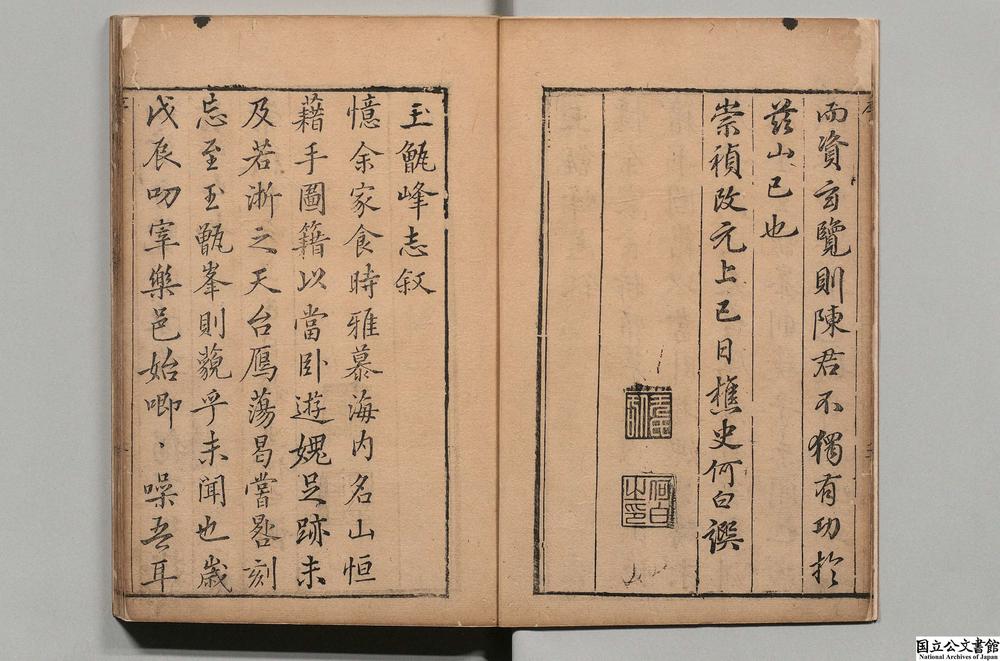 而資玄覽則陳君不獨有功於
茲山已也
崇禎改元上巳日樵史何白譔
何白
之印
玉甑峰志叙
憶余家食時雅慕海内名山恒
藉手圖籍以當卧遊媿足跡未
及若浙之天台鴈蕩曷嘗晷刻
忘至玉甑峯則藐乎未聞也歲
戊辰叨宰樂邑始唧、噪吾耳
国立公文書館
National Archives of Japan